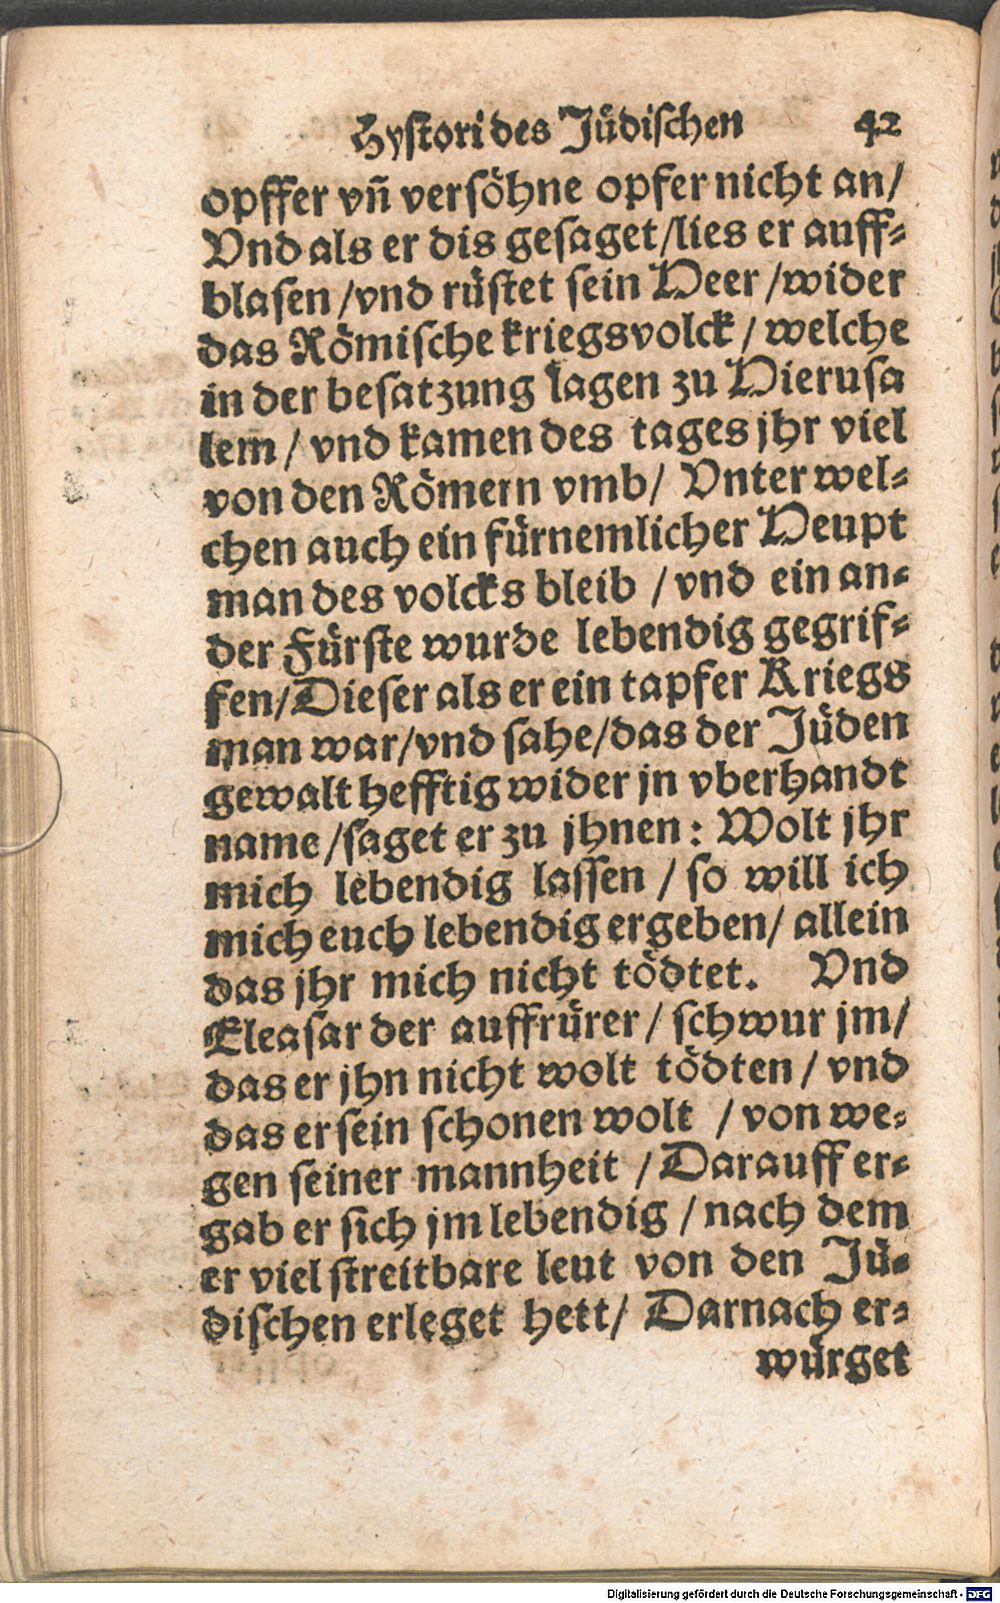 Hystori des Jüdischen 42
opffer vñ versöhne opfer nicht an/
Vnd als er dis gesaget/lies er auff-
blasen/vnd rüstet sein Heer/wider
das Römische kriegsvolck/welche
in der besatzung lagen zu Hierusa
lem/vnd kamen des tages jhr viel
von den Römern vmb/Vnter wel-
chen auch ein fürnemlicher Heupt
man des volcks bleib/vnd ein an-
der Fürste wurde lebendig gegrif-
fen/Dieser als er ein tapfer Kriegs
man war/vnd sahe/das der Jüden
gewalt hefftig wider jn vberhandt
name/saget er zu jhnen: Wolt jhr
mich lebendig lassen/so will ich
mich euch lebendig ergeben/allein
das jhr mich nicht tödtet. Vnd
Eleasar der auffrürer/schwur jm/
das er jhn nicht wolt tödten/vnd
das er sein schonen wolt/von we-
gen seiner mannheit/Darauff er-
gab er sich jm lebendig/nach dem
er viel streitbare leut von den Jü-
dischen erleget hett/Darnach er-
würget
Digitalisierung gefördert durch die Deutsche Forschungsgemeinschaft - DFG